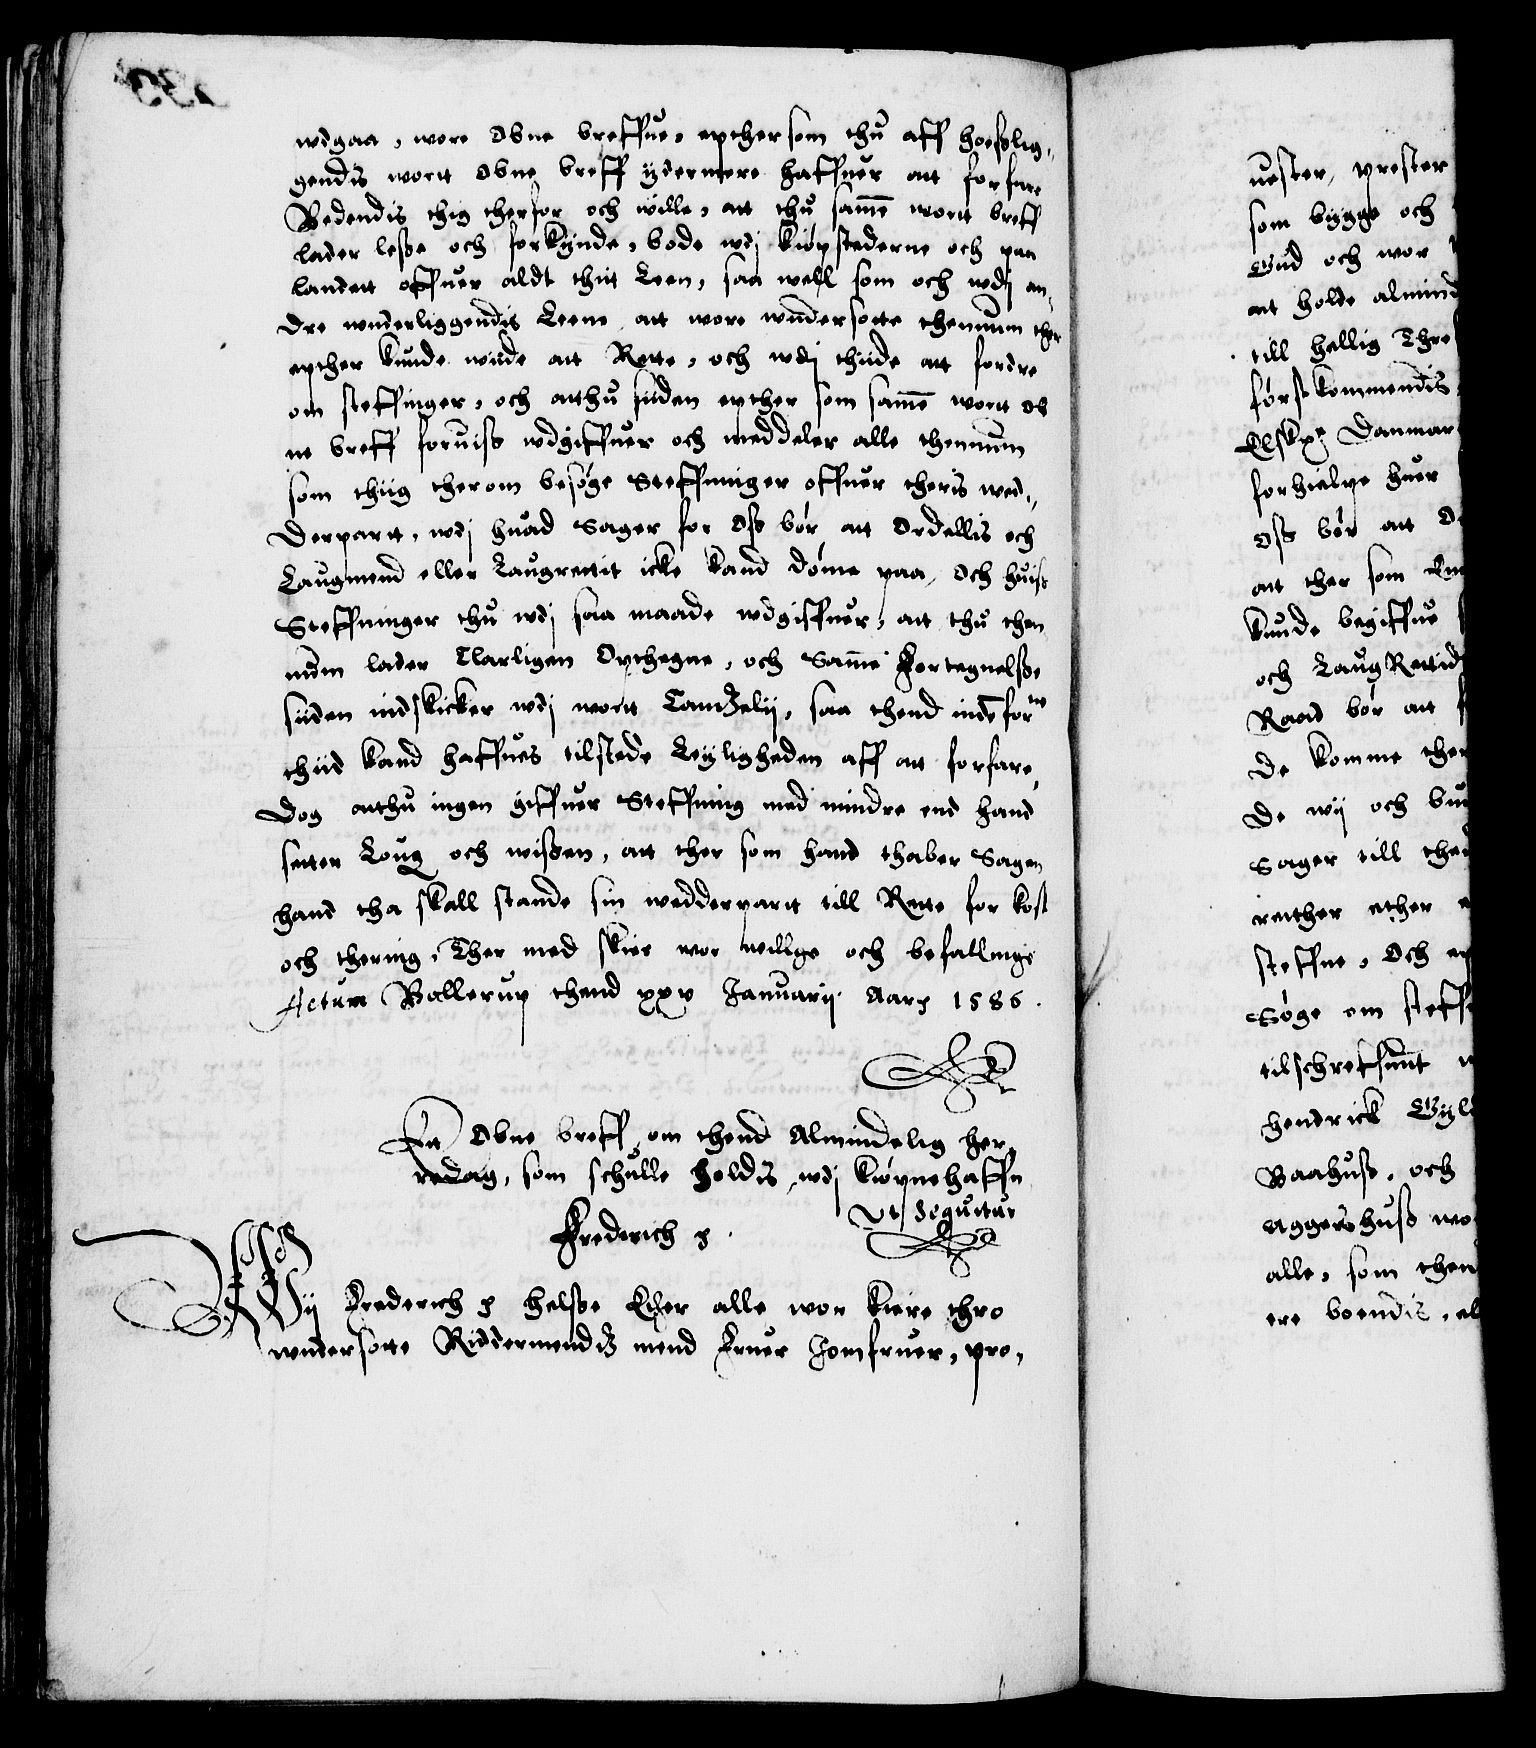 wdgaa, wore obne breffue, epthersom thu aff hosslig,,
gendis wort obne breff ydermere haffuer att forfare
Bedendis thig therfor och wille, att thu samme wort breff
lader lesse och forkynde, bode wdj kiøpstederne och paa
landett offuer aldt thit Leen, saa well som och wdj an,
dre wnderliggendis Leene att wore wndersotte thennum ther
epther kunde wiide att Rette, och wdj thiide att fordre
om steffinger, och atthu siiden epther som samme wort ob
ne breff foruiss wdgiffuer och meddeler alle thennum
som thiig therom besøge Steffninger offuer theris wed,,
derpartt, wdj huad Sager for oss bør att Ordellis och
Laugmend eller Laugrettit icke kand døme paa, Och huiss
Steffninger thu wdj saa maade wdgiffuer, att thu then
num lader Clarligen Opthegne, och Samme Fortegnelsse
siiden indskicker wdj wortt Candzelij, saa thend inden for.ne
thiid kand haffues tilstede Leyligheden aff att forfare,
Dog atthu ingen giffuer Steffning med mindre end hand
setter Loug och wissen, att ther som hand thaber Sagen
hand tha skall stande sin wedderpartt till Rette for kost
och thering, Ther med skier wor willge och befallinge
Actum Ballerup thend xxv Januarij Aar 1586.
Ett Obne breff om thend Almindelig her,
redag, som schulle holdis wdj kiøpnehaffn
Vt sequitur
Frederich
Wij Frederich helsse Ether alle wor kiere thro
wndersotte Riddermendz mend Fruer Jomfruer, pro,
uester, prester
som bygge och
Gud och wor
att holde almind
till hellig Thre
førstkommendis
Elsk. Danmar
forhielpe huer
oss bør att
att ther som
kunde begiffue
och Laug Rettid
Raad bør att
de komme ther
de wij och
Sager till
retther ether
steffne, Och ep
Søge om steff
tilschreffuitt
Hendrick Gyl
Baahuss, och
Aggershuss wo
alle, som then
ere boendis,